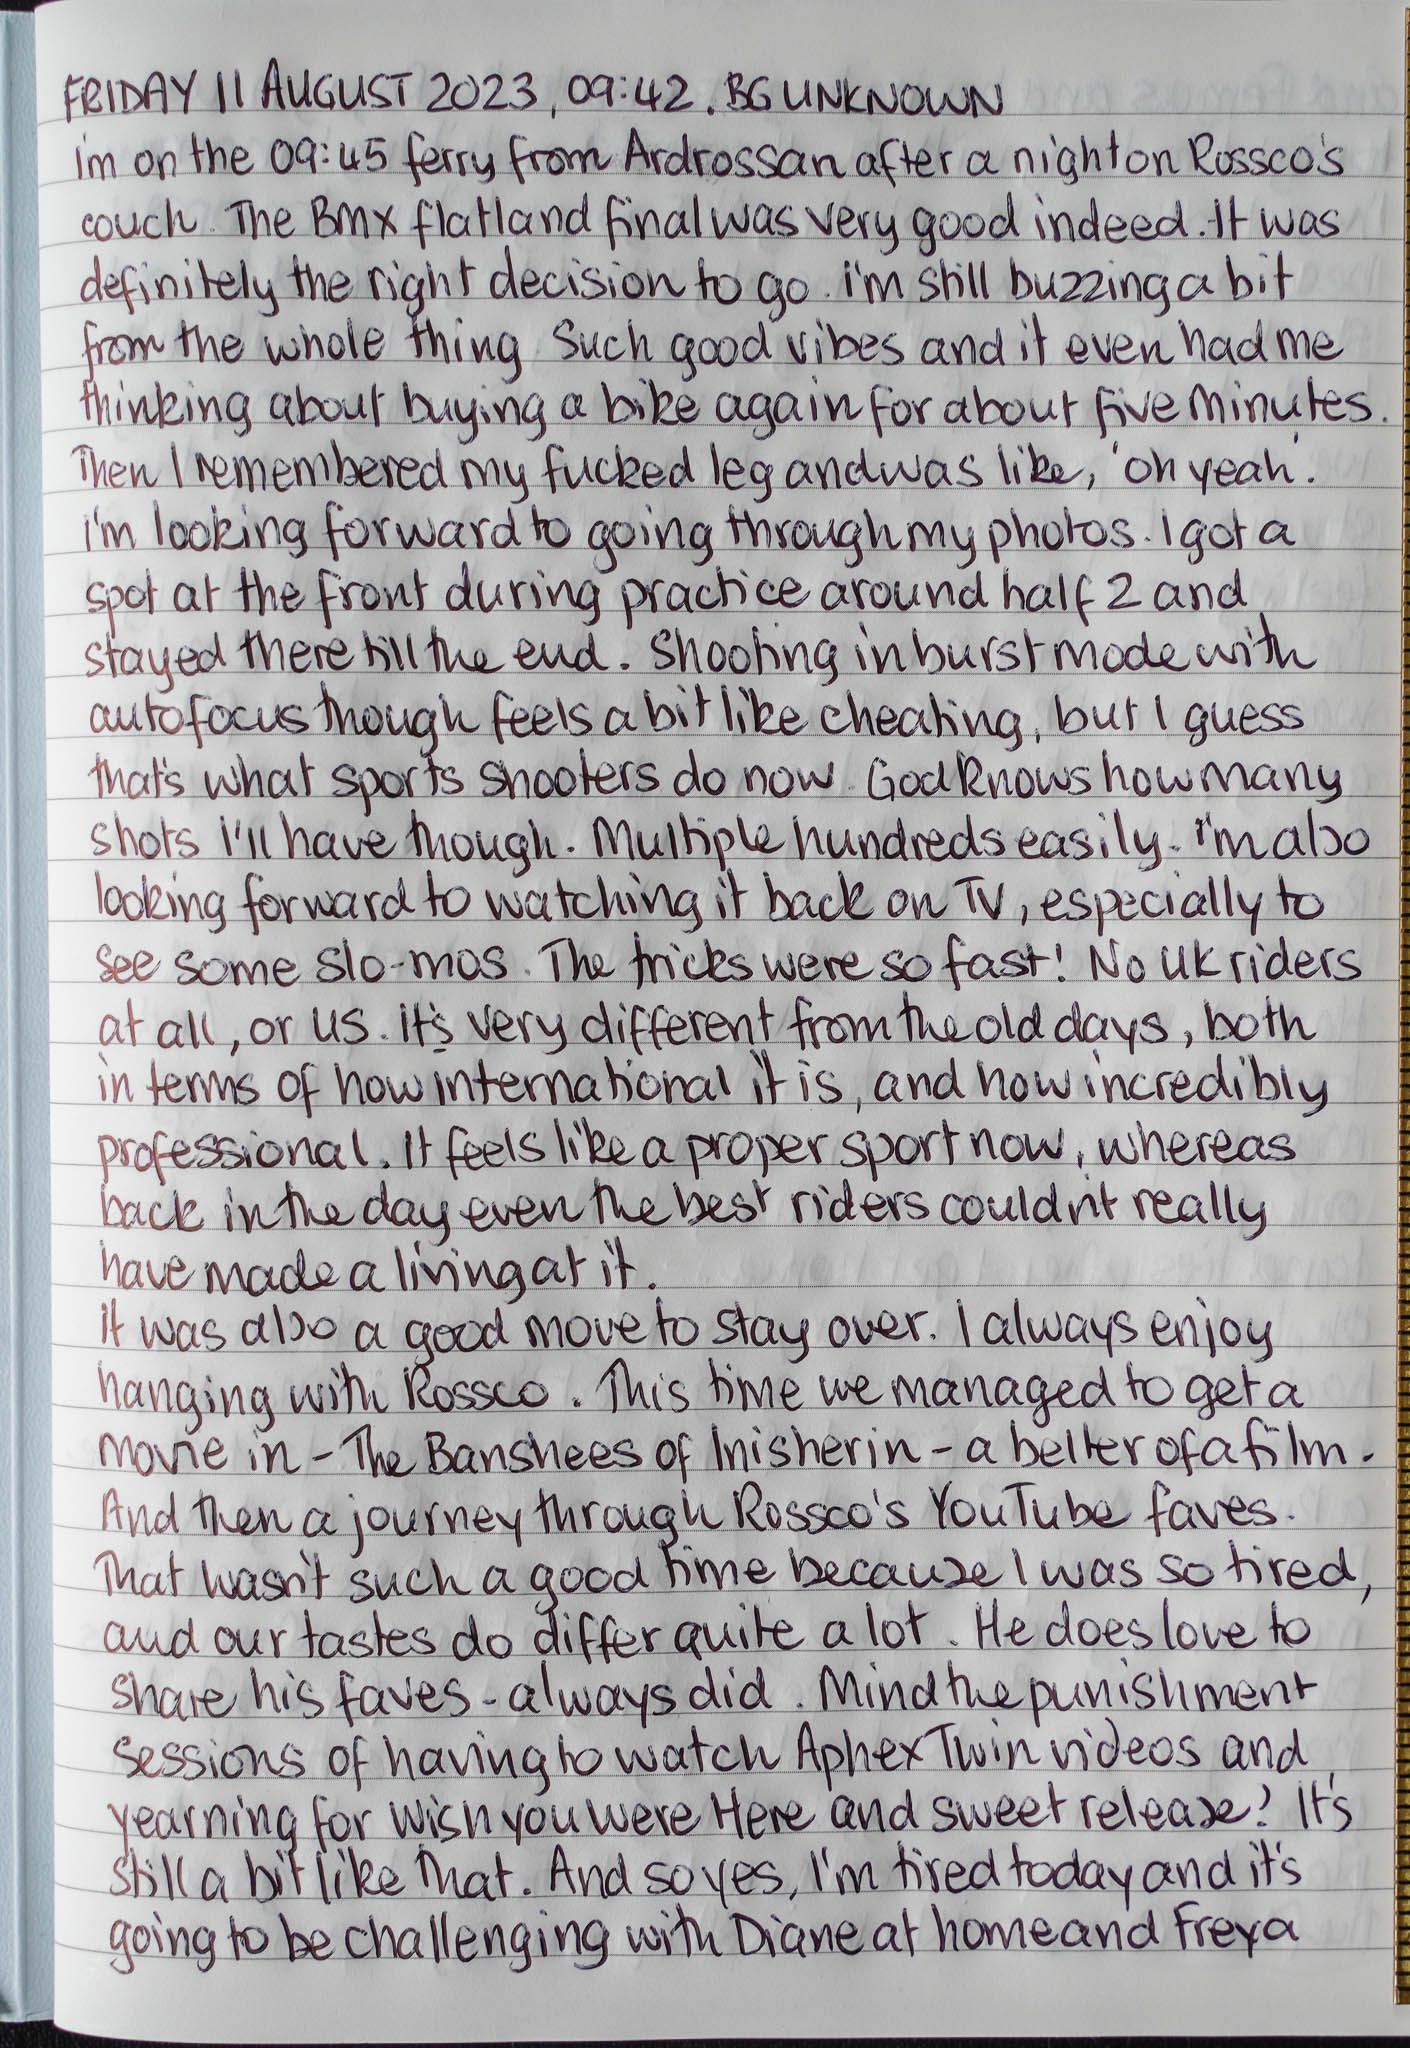 FRIDAY 11 AUGUST 2023, 09:42. BG UNKNOWN
i'm on the 09:45 ferry from Ardrossan after a night on Rossco's
couch. The BMX flatland final was very good indeed. It was
definitely the right decision to go. i'm still buzzing a bit
from the whole thing. Such good vibes and it even had me
thinking about buying a bike again for about five minutes.
Then I remembered my fucked leg and was like, 'oh yeah'.
i'm looking forward to going through my photos. I got a
spot at the front during practice around half 2 and
stayed there till the end. Shooting in burst mode with
autofocus though feels a bit like cheating, but I guess
that's what sports shooters do now. God knows how many
shots I'll have though. Multiple hundreds easily. i'm also
looking forward to watching it back on TV, especially to
see some slo-mos. The tricks were so fast! No UK riders
at all, or US. it's very different from the old days, both
in terms of how international it is, and how incredibly
professional. It feels like a proper sport now, whereas
back in the day even the best riders couldn't really
have made a living at it.
it was also a good move to stay over. I always enjoy
hanging with Rossco. This time we managed to get a
movie in - The Banshees of Inisherin - a belter of a film.
And then a journey through Rossco's YouTube faves.
That wasn't such a good time because I was so tired,
and our tastes do differ quite a lot. He does love to
share his faves - always did. Mind the punishment
sessions of having to watch Aphex Twin videos and
yearning for Wish You Were Here and sweet release? It's
still a bit like that. And so yes, I'm tired today and it's
going to be challenging with Diane at home and Freya